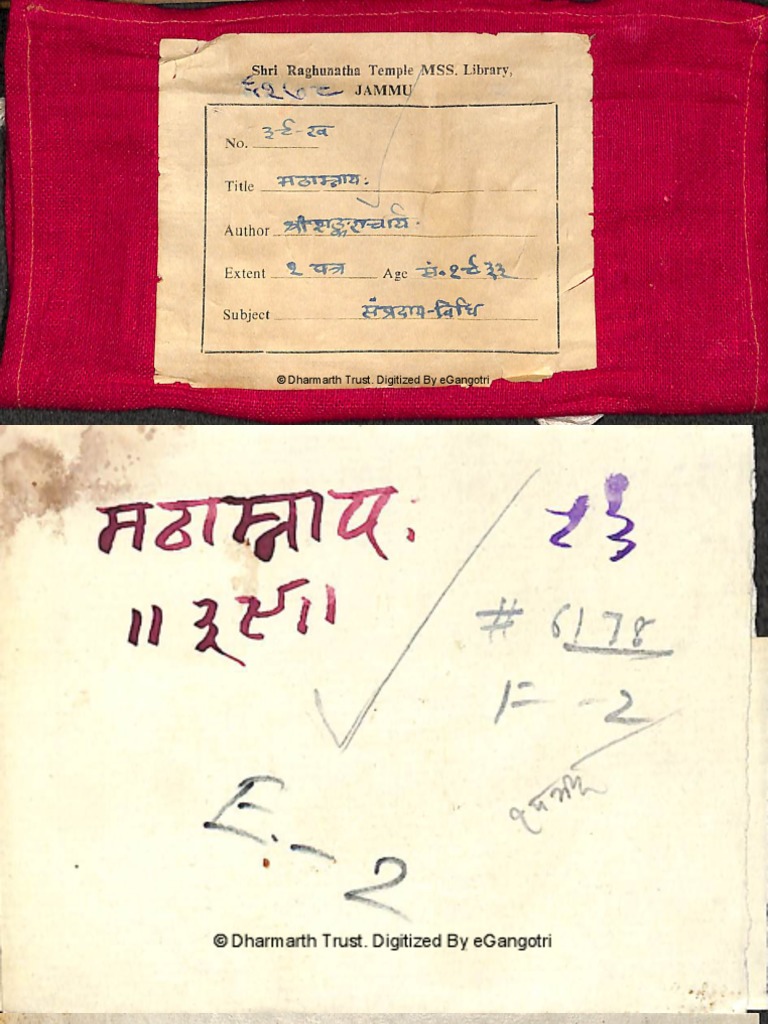 Shri Raghunatha Temple MSS. Library,
६१७८ JAMMU
No. ३९-ख
Title मठाम्नायः
Author श्रीशङ्कराचार्य.
Extent २ पत्र Age सं.१९३३
Subject संप्रदाय-विधि
© Dharmarth Trust. Digitized By eGangotri
मठाम्नायः
॥३९॥
# 6178
F - 2
E. - 2
© Dharmarth Trust. Digitized By eGangotri